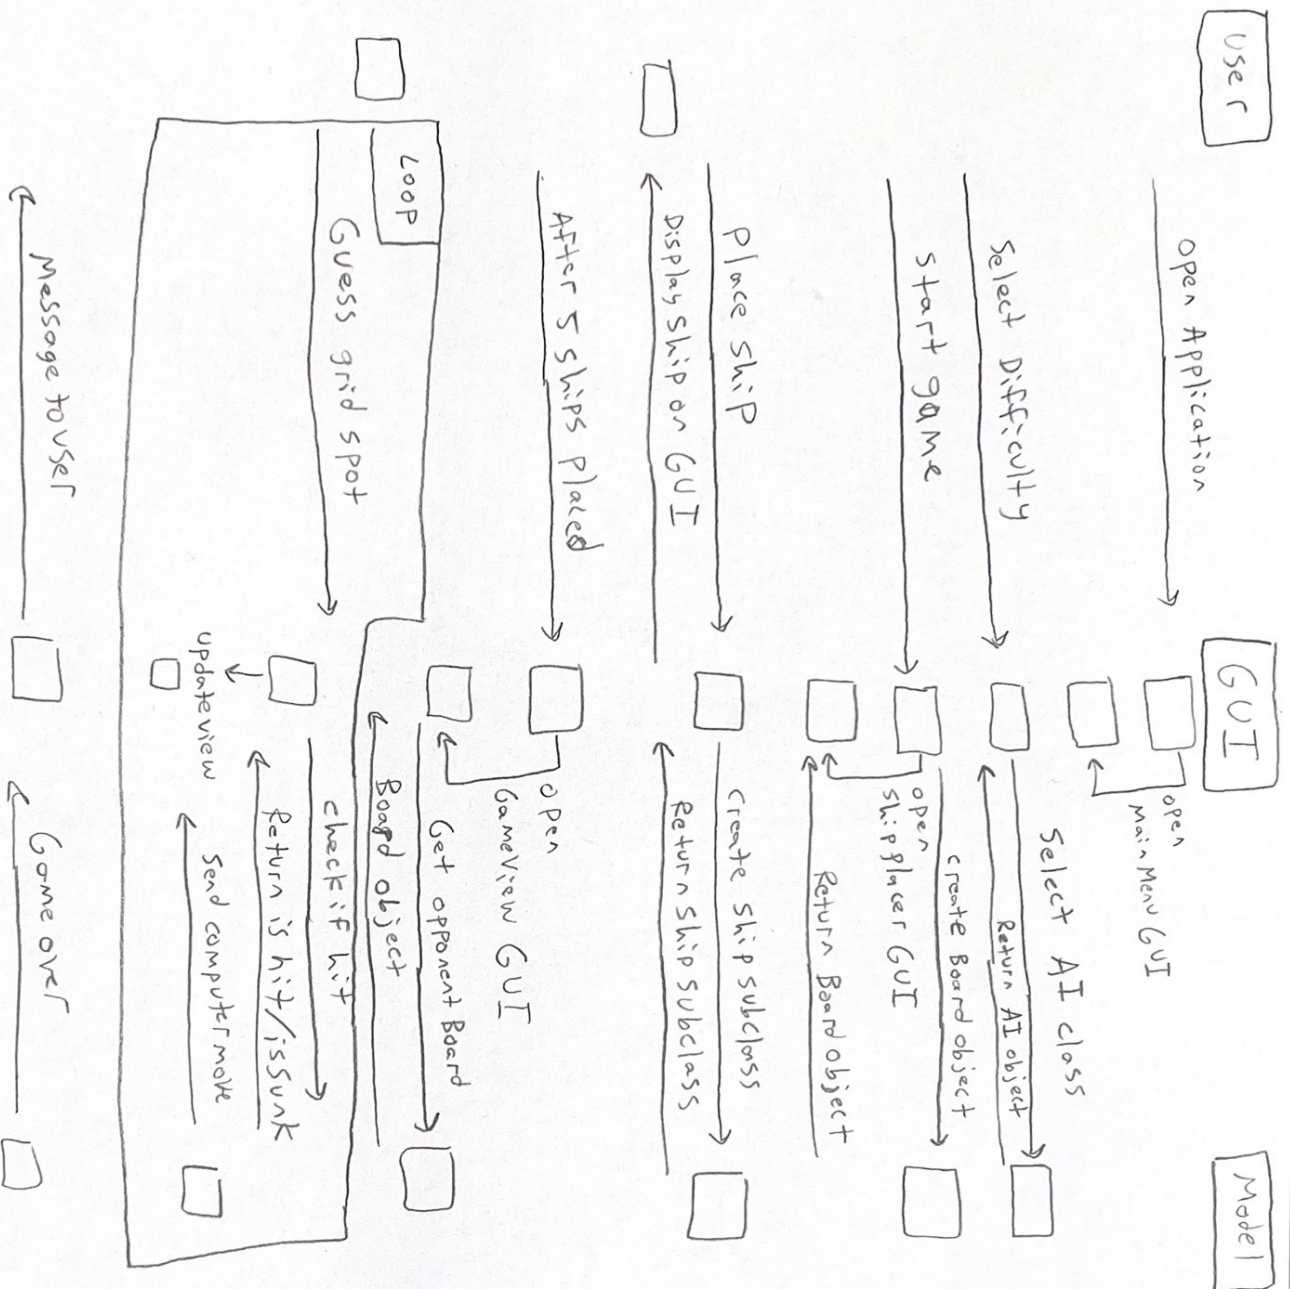 User
GUI
Model
open Application
open
mainMenu GUI
Select Difficulty
Select AI class
Return AI object
Start game
create Board object
open
ship placer GUI
Return Board object
Place ship
create ship subclass
Return ship subclass
Display ship on GUI
After 5 ships placed
open
GameView GUI
Get opponent Board
Board object
LOOP
Guess grid spot
check if hit
Return is hit/issunk
updateview
send computer move
Game over
Message to user